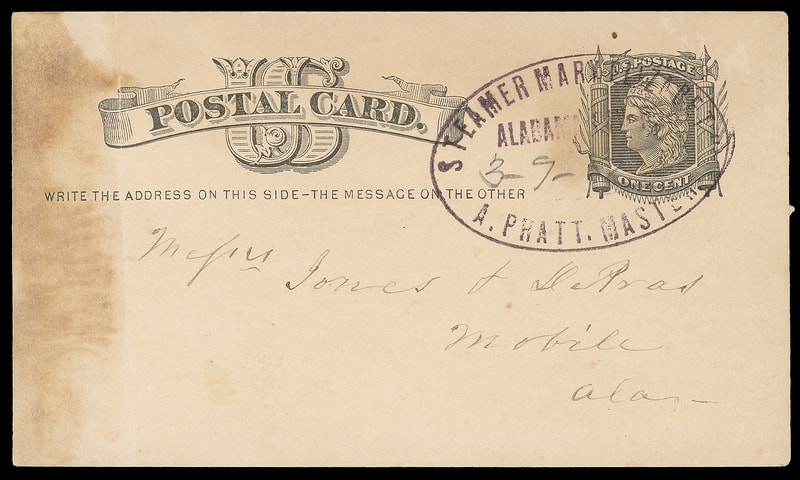 US
POSTAL CARD.
WRITE THE ADDRESS ON THIS SIDE-THE MESSAGE ON THE OTHER
U.S. POSTAGE
ONE CENT
STEAMER MARY
3-9-
A. PRATT. MASTER
Messrs Jones &
Mobile
Ala-